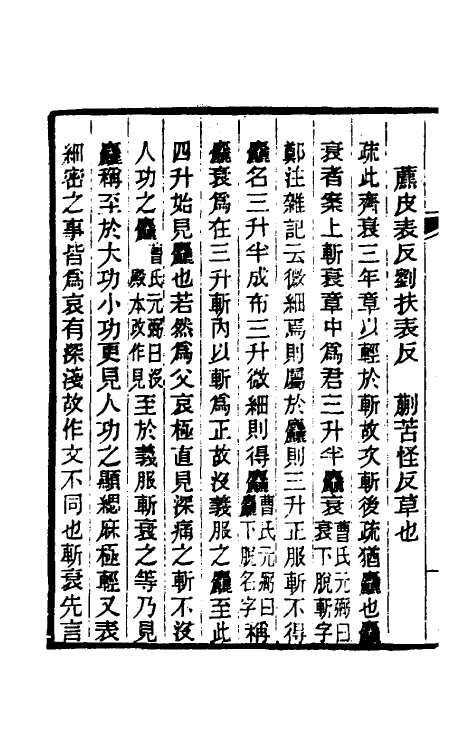 藨皮表反劉扶表反　蒯苦怪反草也
疏此齊衰三年章以輕於斬故次斬後疏猶麤也麤
衰者案上斬衰章中爲君三升半麤衰曹氏元弼曰衰下脫斬字
鄭注雜記云微細焉則屬於麤則三升正服斬不得
麤名三升半成布三升微細則得麤曹氏元弼曰麤下脫名字稱
麤衰爲在三升斬內以斬爲正故沒義服之麤至此
四升始見麤也若然爲父哀極直見深痛之斬不沒
人功之麤曹氏元弼曰沒殿本改作見至於義服斬衰之等乃見
麤稱至於大功小功更見人功之顯緦麻極輕又表
細密之事皆爲哀有深淺故作文不同也斬衰先言